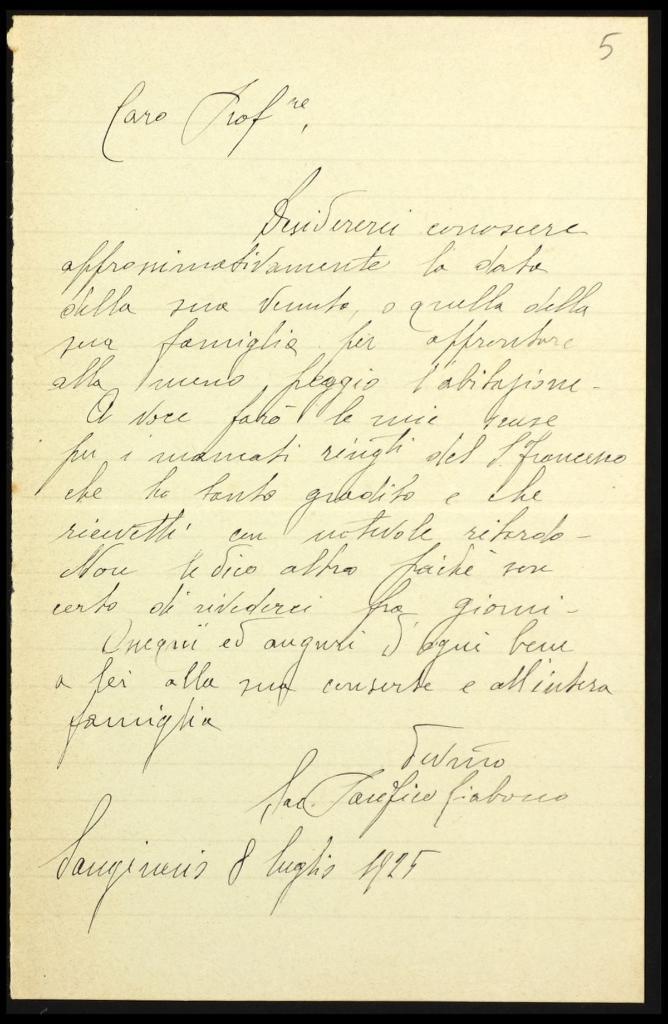 5
Caro Prof.re,
Desidererei conoscere
approssimativamente la data
della sua venuta, o quella della
sua famiglia per affrontare
alla meno peggio l'abitazione -
A voce farò le mie scuse
per i mancati ringti del S. Francesco
che ho tanto gradito e che
ricevetti con notevole ritardo -
Non le dico altro poichè son
certo di rivederci fra giorni -
Ossequii ed auguri d'ogni bene
a Lei alla sua consorte e all'intera
famiglia
Devmo
Sac. Pacifico
8 luglio 1925